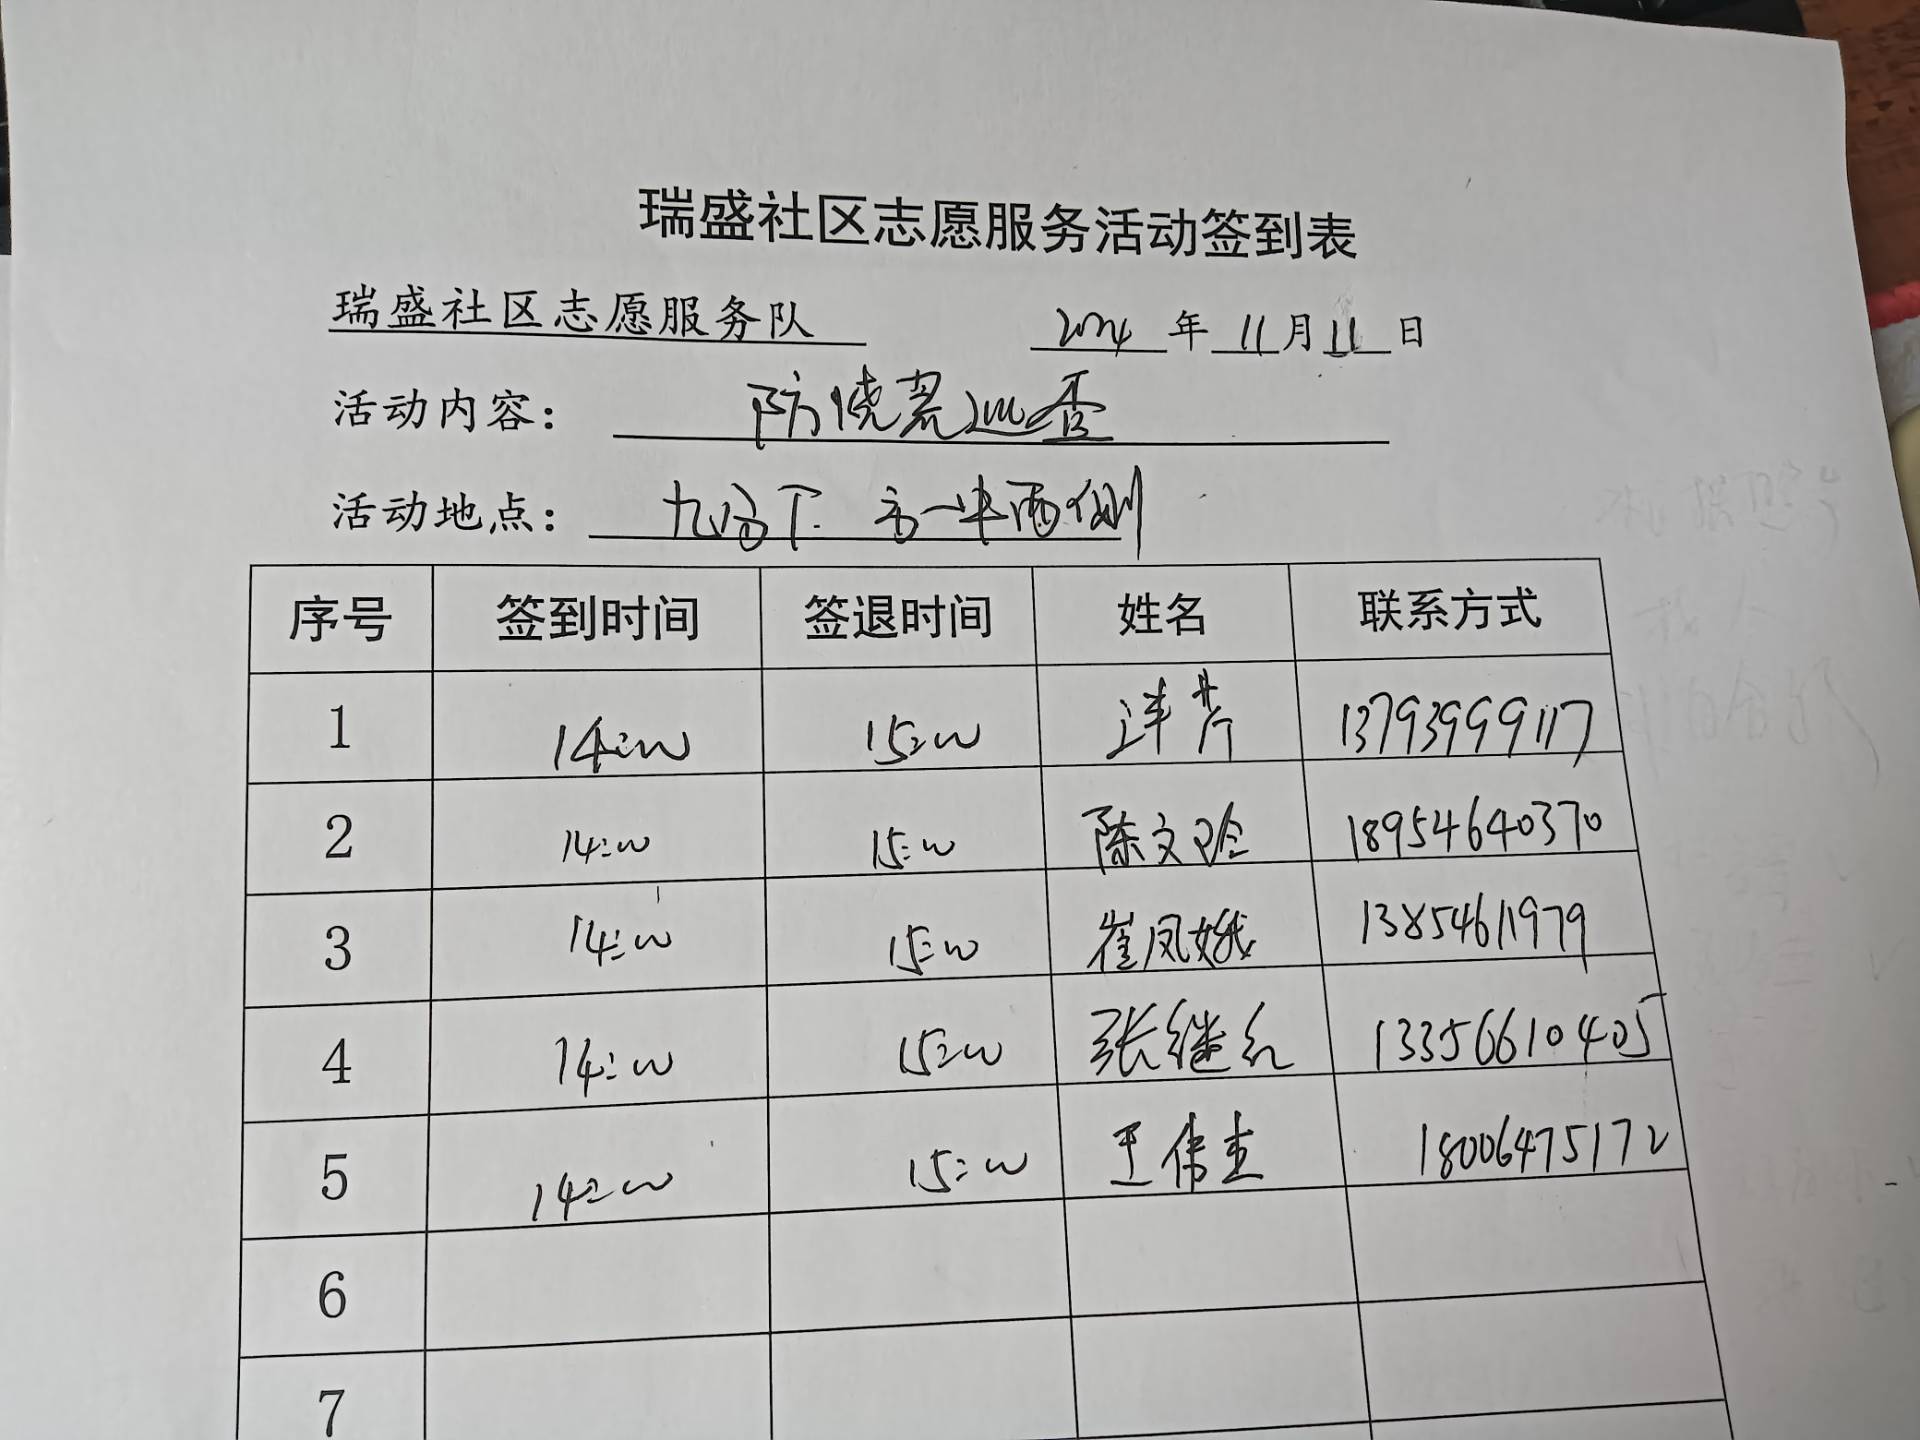 瑞盛社区志愿服务活动签到表
瑞盛社区志愿服务队 2024 年 11 月 11 日
活动内容： 防烧荒巡查
活动地点： 两侧
序号 签到时间 签退时间 姓名 联系方式
1 14:00 15:00 13793999117
2 14:00 15:00 陈文玲 18954640370
3 14:00 15:00 崔凤娥 13854611979
4 14:00 15:00 张继红 13356610405
5 14:00 15:00 王伟杰 18006475172
6
7